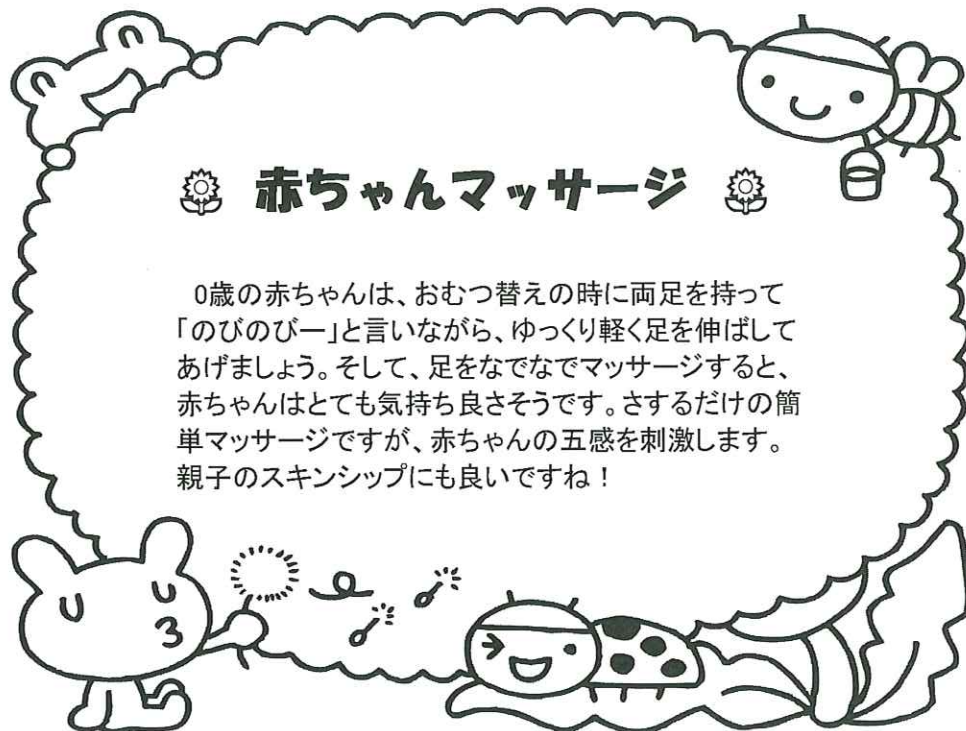 赤ちゃんマッサージ
0歳の赤ちゃんは、おむつ替えの時に両足を持って
「のびのびー」と言いながら、ゆっくり軽く足を伸ばして
あげましょう。そして、足をなでなでマッサージすると、
赤ちゃんはとても気持ち良さそうです。さするだけの簡
単マッサージですが、赤ちゃんの五感を刺激します。
親子のスキンシップにも良いですね！